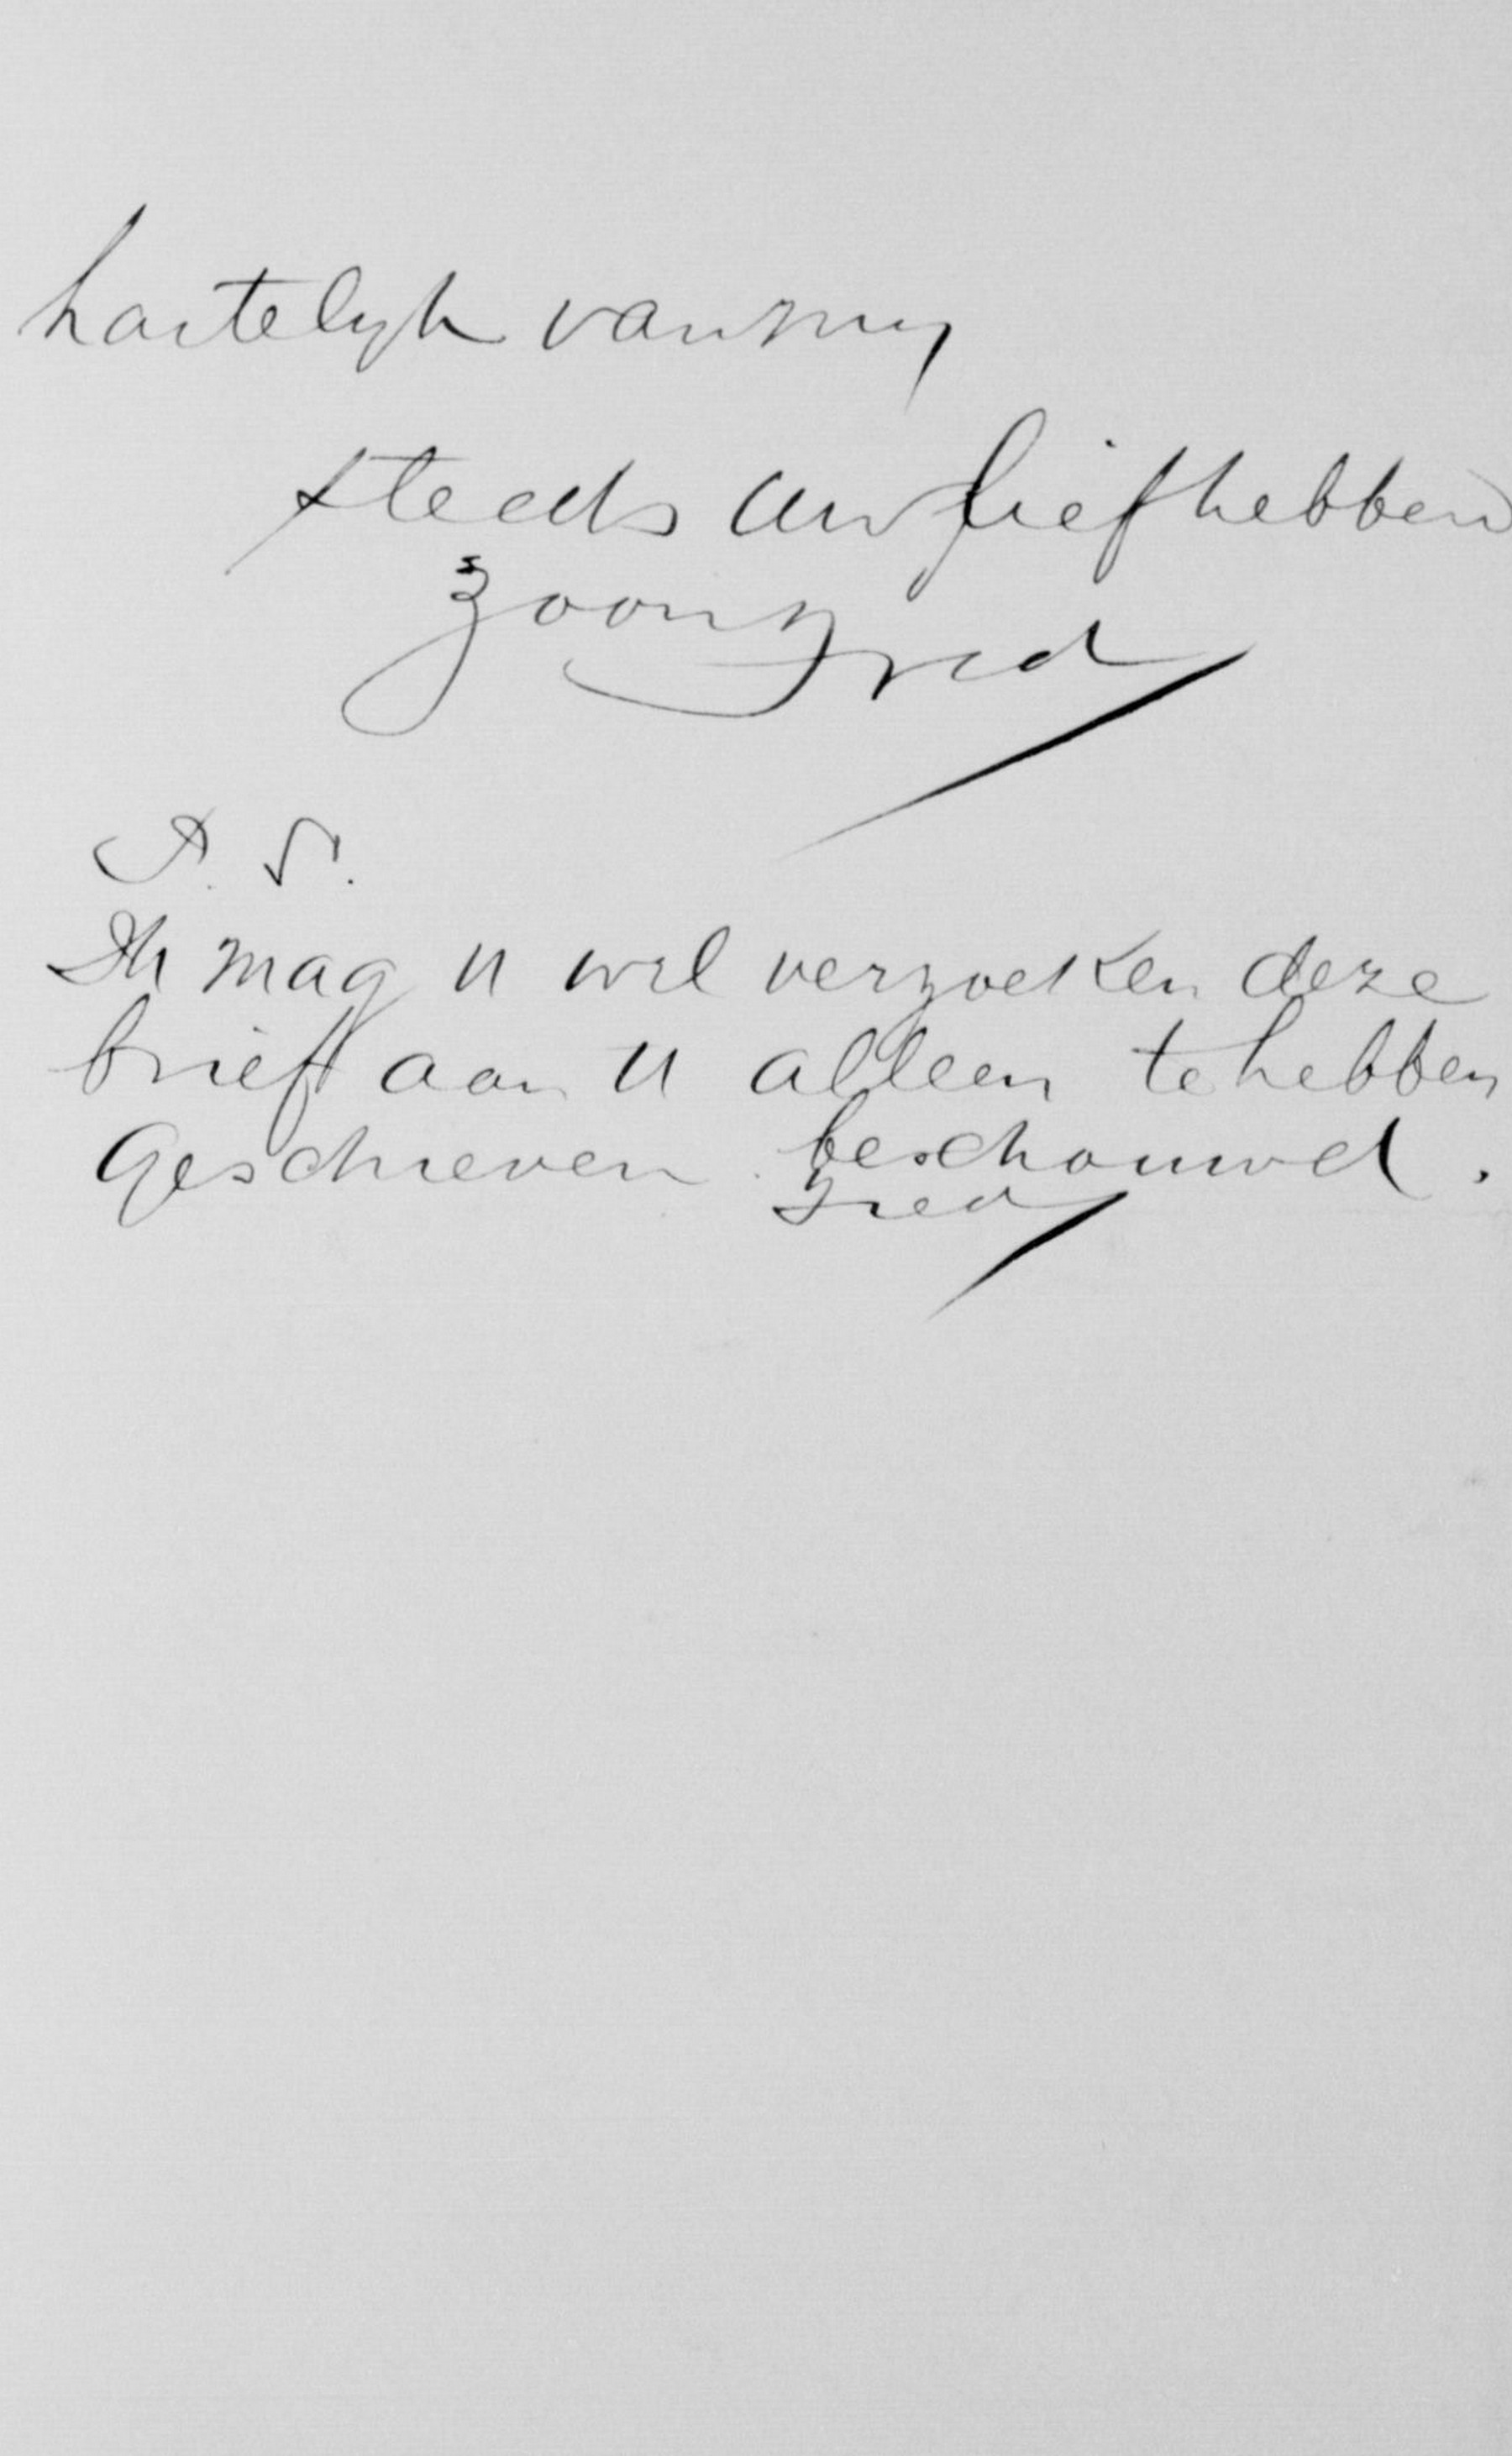 hartelyk van my
steeds uw liefhebbend
zoon Fred
P. S.
Ik mag U wel verzoeken deze
brief aan U alleen te hebben
Geschreven beschouwd.
Fred